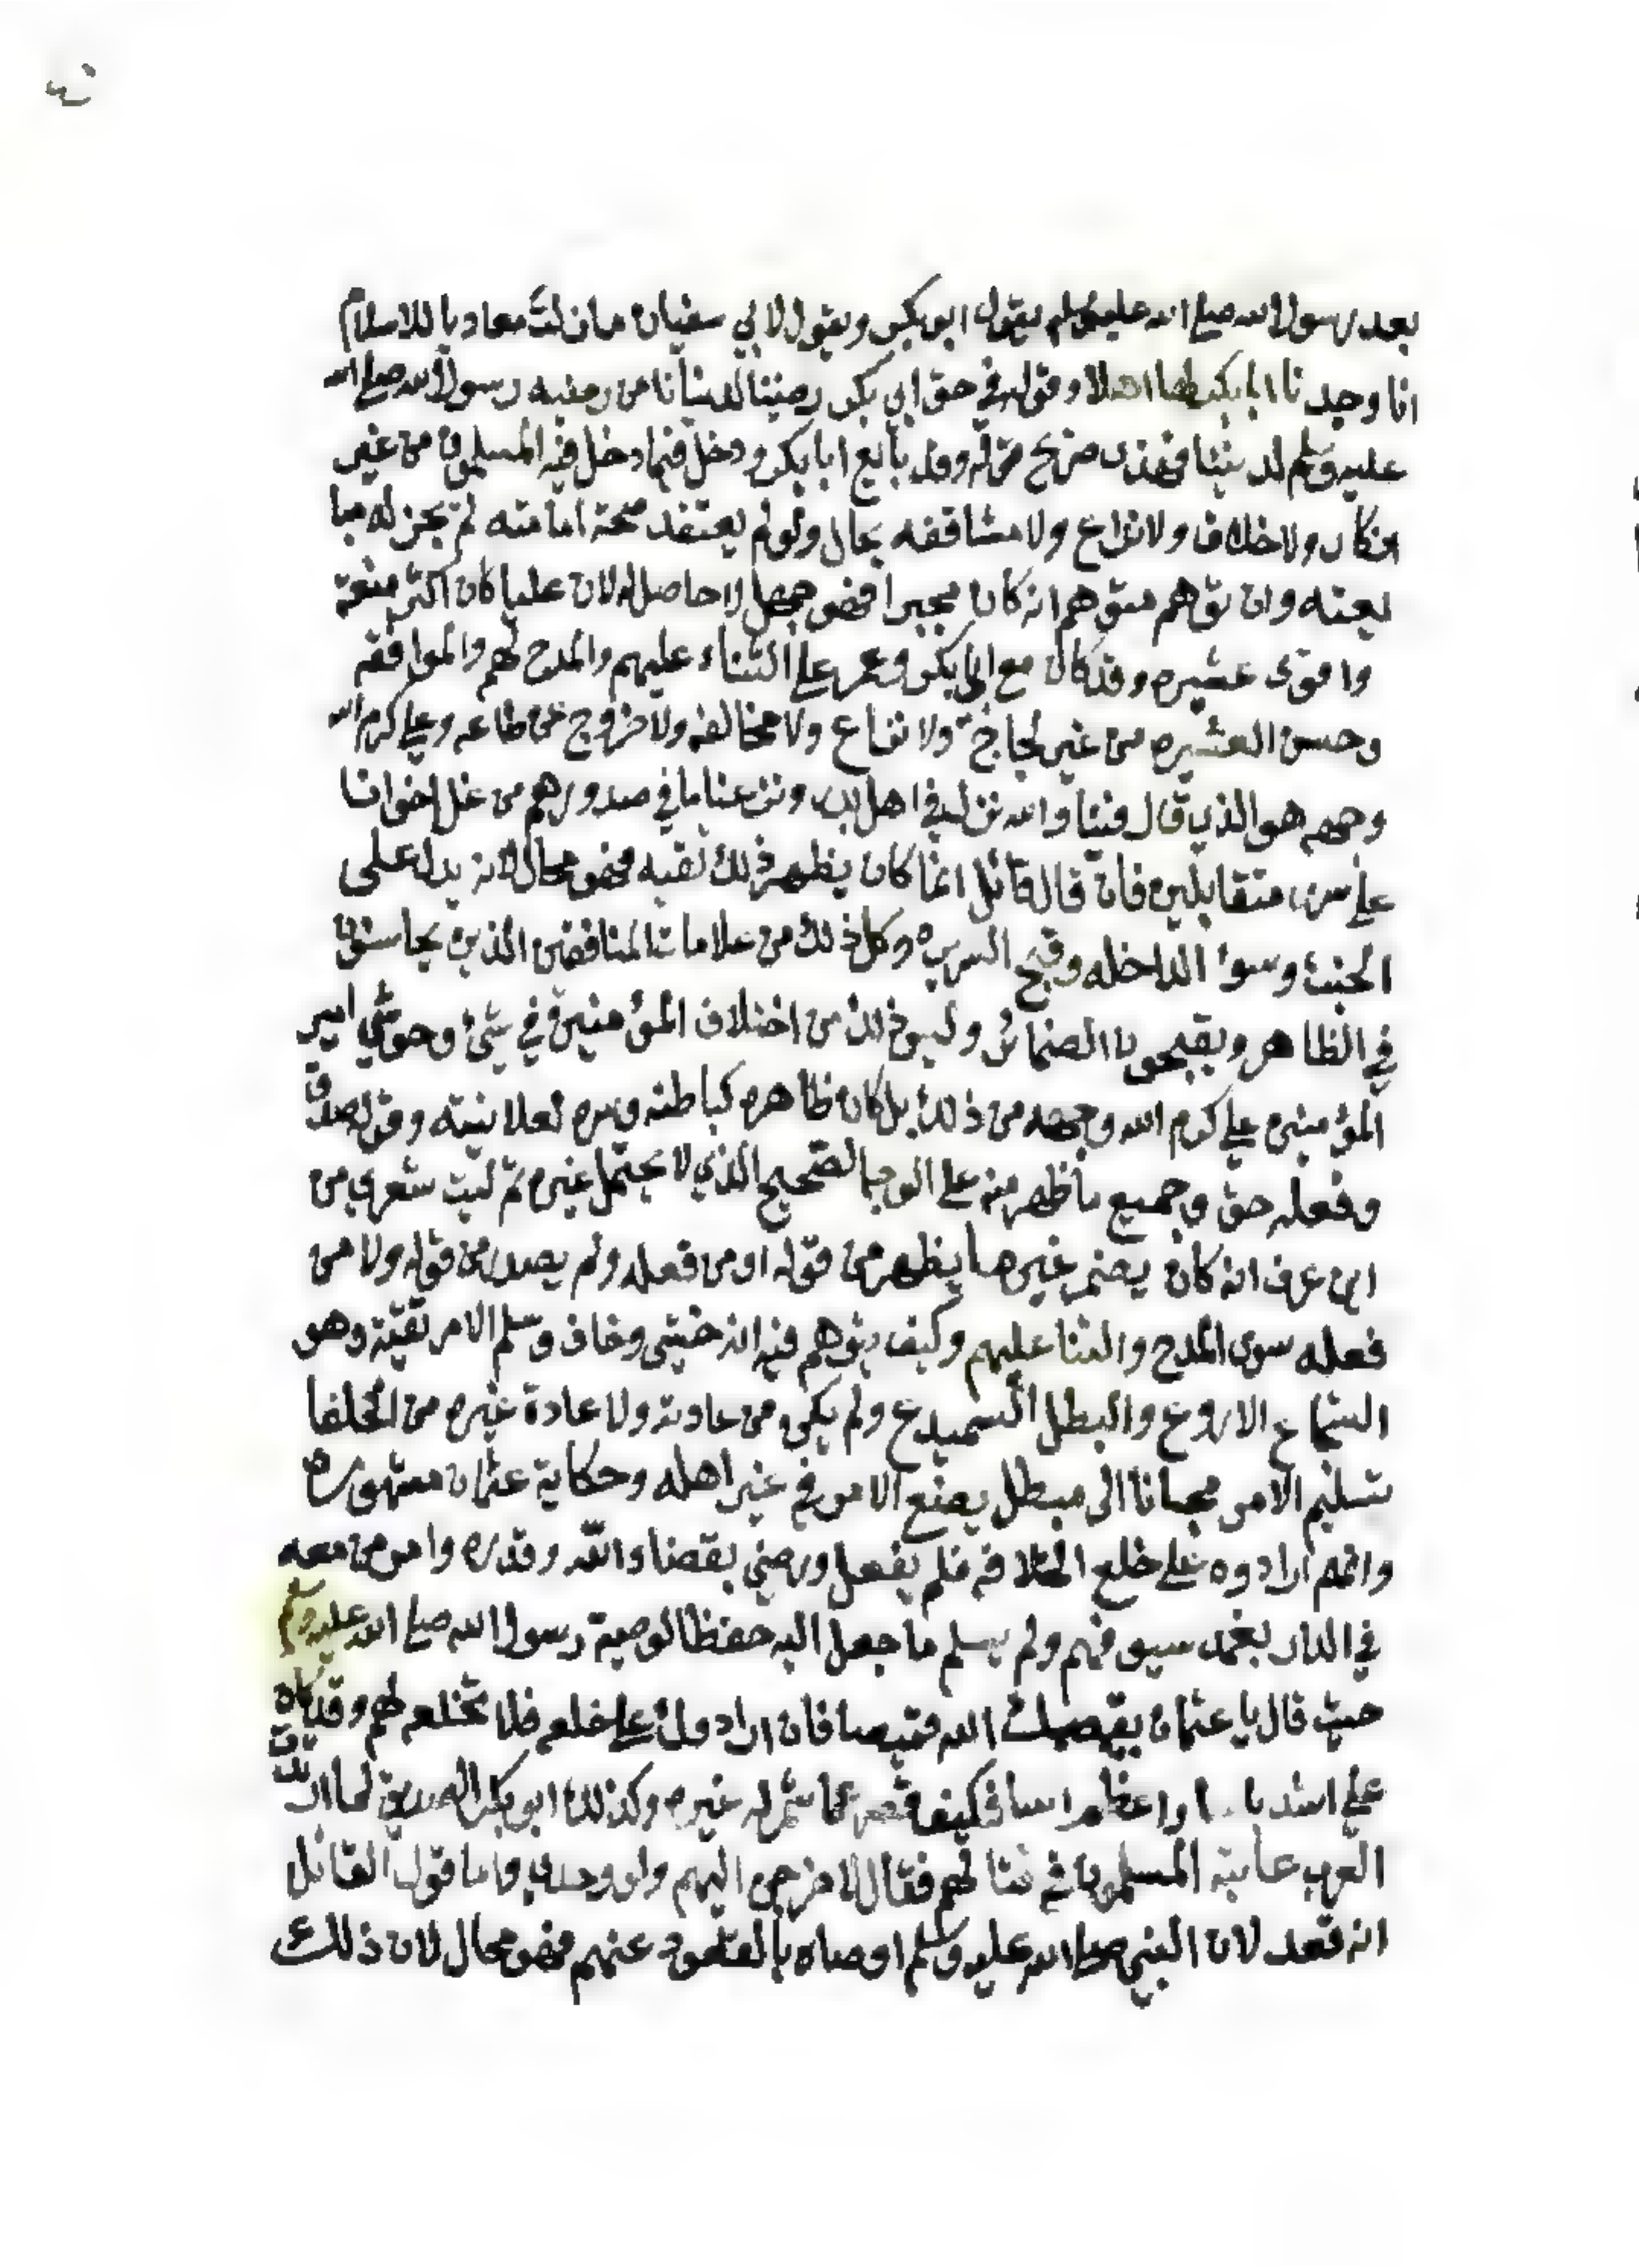 بعد رسول الله صلى الله عليه وسلم يقول ابو بكر ويقول لابي سفيان ما زلت معاديا للاسلام
انا وجدنا ابا بكر لها اهلا وقوله في حق ابي بكر رضينا لدنيانا من رضيه رسول الله صلى الله
عليه وسلم لديننا فهذى صريح قوله وقد بايع ابا بكر ودخل فيما دخل فيه المسلمون من غير
انكار ولا خلاف ولا نزاع ولا مشاققه بحال ولو لم يعتقد صحة امامته لم يجز له مبا
يعته وان توهم متوهم انه كان مجبرا فهو جهل لا حاصل له لان عليا كان اكثر منعة
واقوى عشيره وقد كان مع ابي بكر وعمر على الثناء عليهم والمدح لهم والموافقه
وحسن العشيره من غير لجاج ولا نزاع ولا مخالفه ولا خروج عن طاعه وعلي كرم الله
وجهه هو الذي قال فينا والله نزل في اهل بدر ونزعنا ما في صدورهم من غل اخوانا
على سرر متقابلين فان قال قائل انما كان يظهر ذلك تقيه فهو محال لانه يدل على
الخبث وسوء الداخله وقبح السريره وكل ذلك من علامات المنافقين الذين يحاسنون
في الظاهر ويقبحون الضمائر وليس ذلك من اخلاق المؤمنين في شئ وحوشي امير
المؤمنين علي كرم الله وجهه من ذلك بل كان ظاهره كباطنه وسره كعلانيته وقوله صدق
وفعله حق وجميع ما ظهر منه على الوجه الصحيح الذي لا يحتمل غيره ثم ليت شعري من
اين عرف انه كان يضمر غير ما يظهر من قوله او من فعله ولم يصدر من قوله ولا من
فعله سوى المدح والثنا عليهم وكيف يتوهم فيه انه خشي وخاف وسلم الامر تقيّة وهو
الشجاع الاروع والبطل السميدع ولم يكن من عادته ولا عادة غيره من الخلفا
تسليم الامر مجانا الى مبطل يضع الامر في غير اهله وحكاية عثمان مشهوره
وانهم ارادوه على خلع الخلافه فلم يفعل ورضي بقضاء الله وقدره وامر من معه
في الدار بغمد سيوفهم ولم يسلم ما جعل اليه حفظا لوصية رسول الله صلى الله عليه وسلم
حيث قال يا عثمان يقمصك الله قميصا فان ارادوك على خلعه فلا تخلعه لهم وقد كان
علي اشد باسا واعظم فكيف قصر عما شمر له غيره وكذلك ابو بكر الصديق لما ارتدت
العرب عاتبه المسلمون في قتالهم فقال لاخرجن اليهم ولو وحدي واما قول القائل
انه قعد لان النبي صلى الله عليه وسلم اوصاه بالقعود عنهم فهو محال لان ذلك